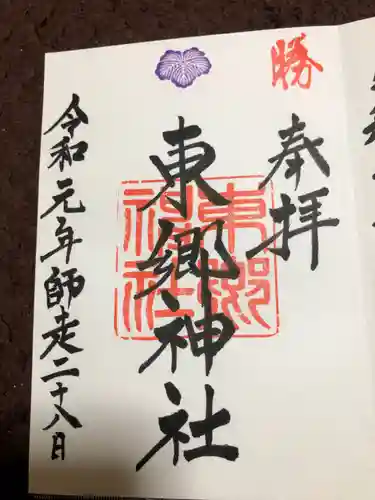 勝
奉拝
東郷神社
東郷神社
令和元年師走二十八日